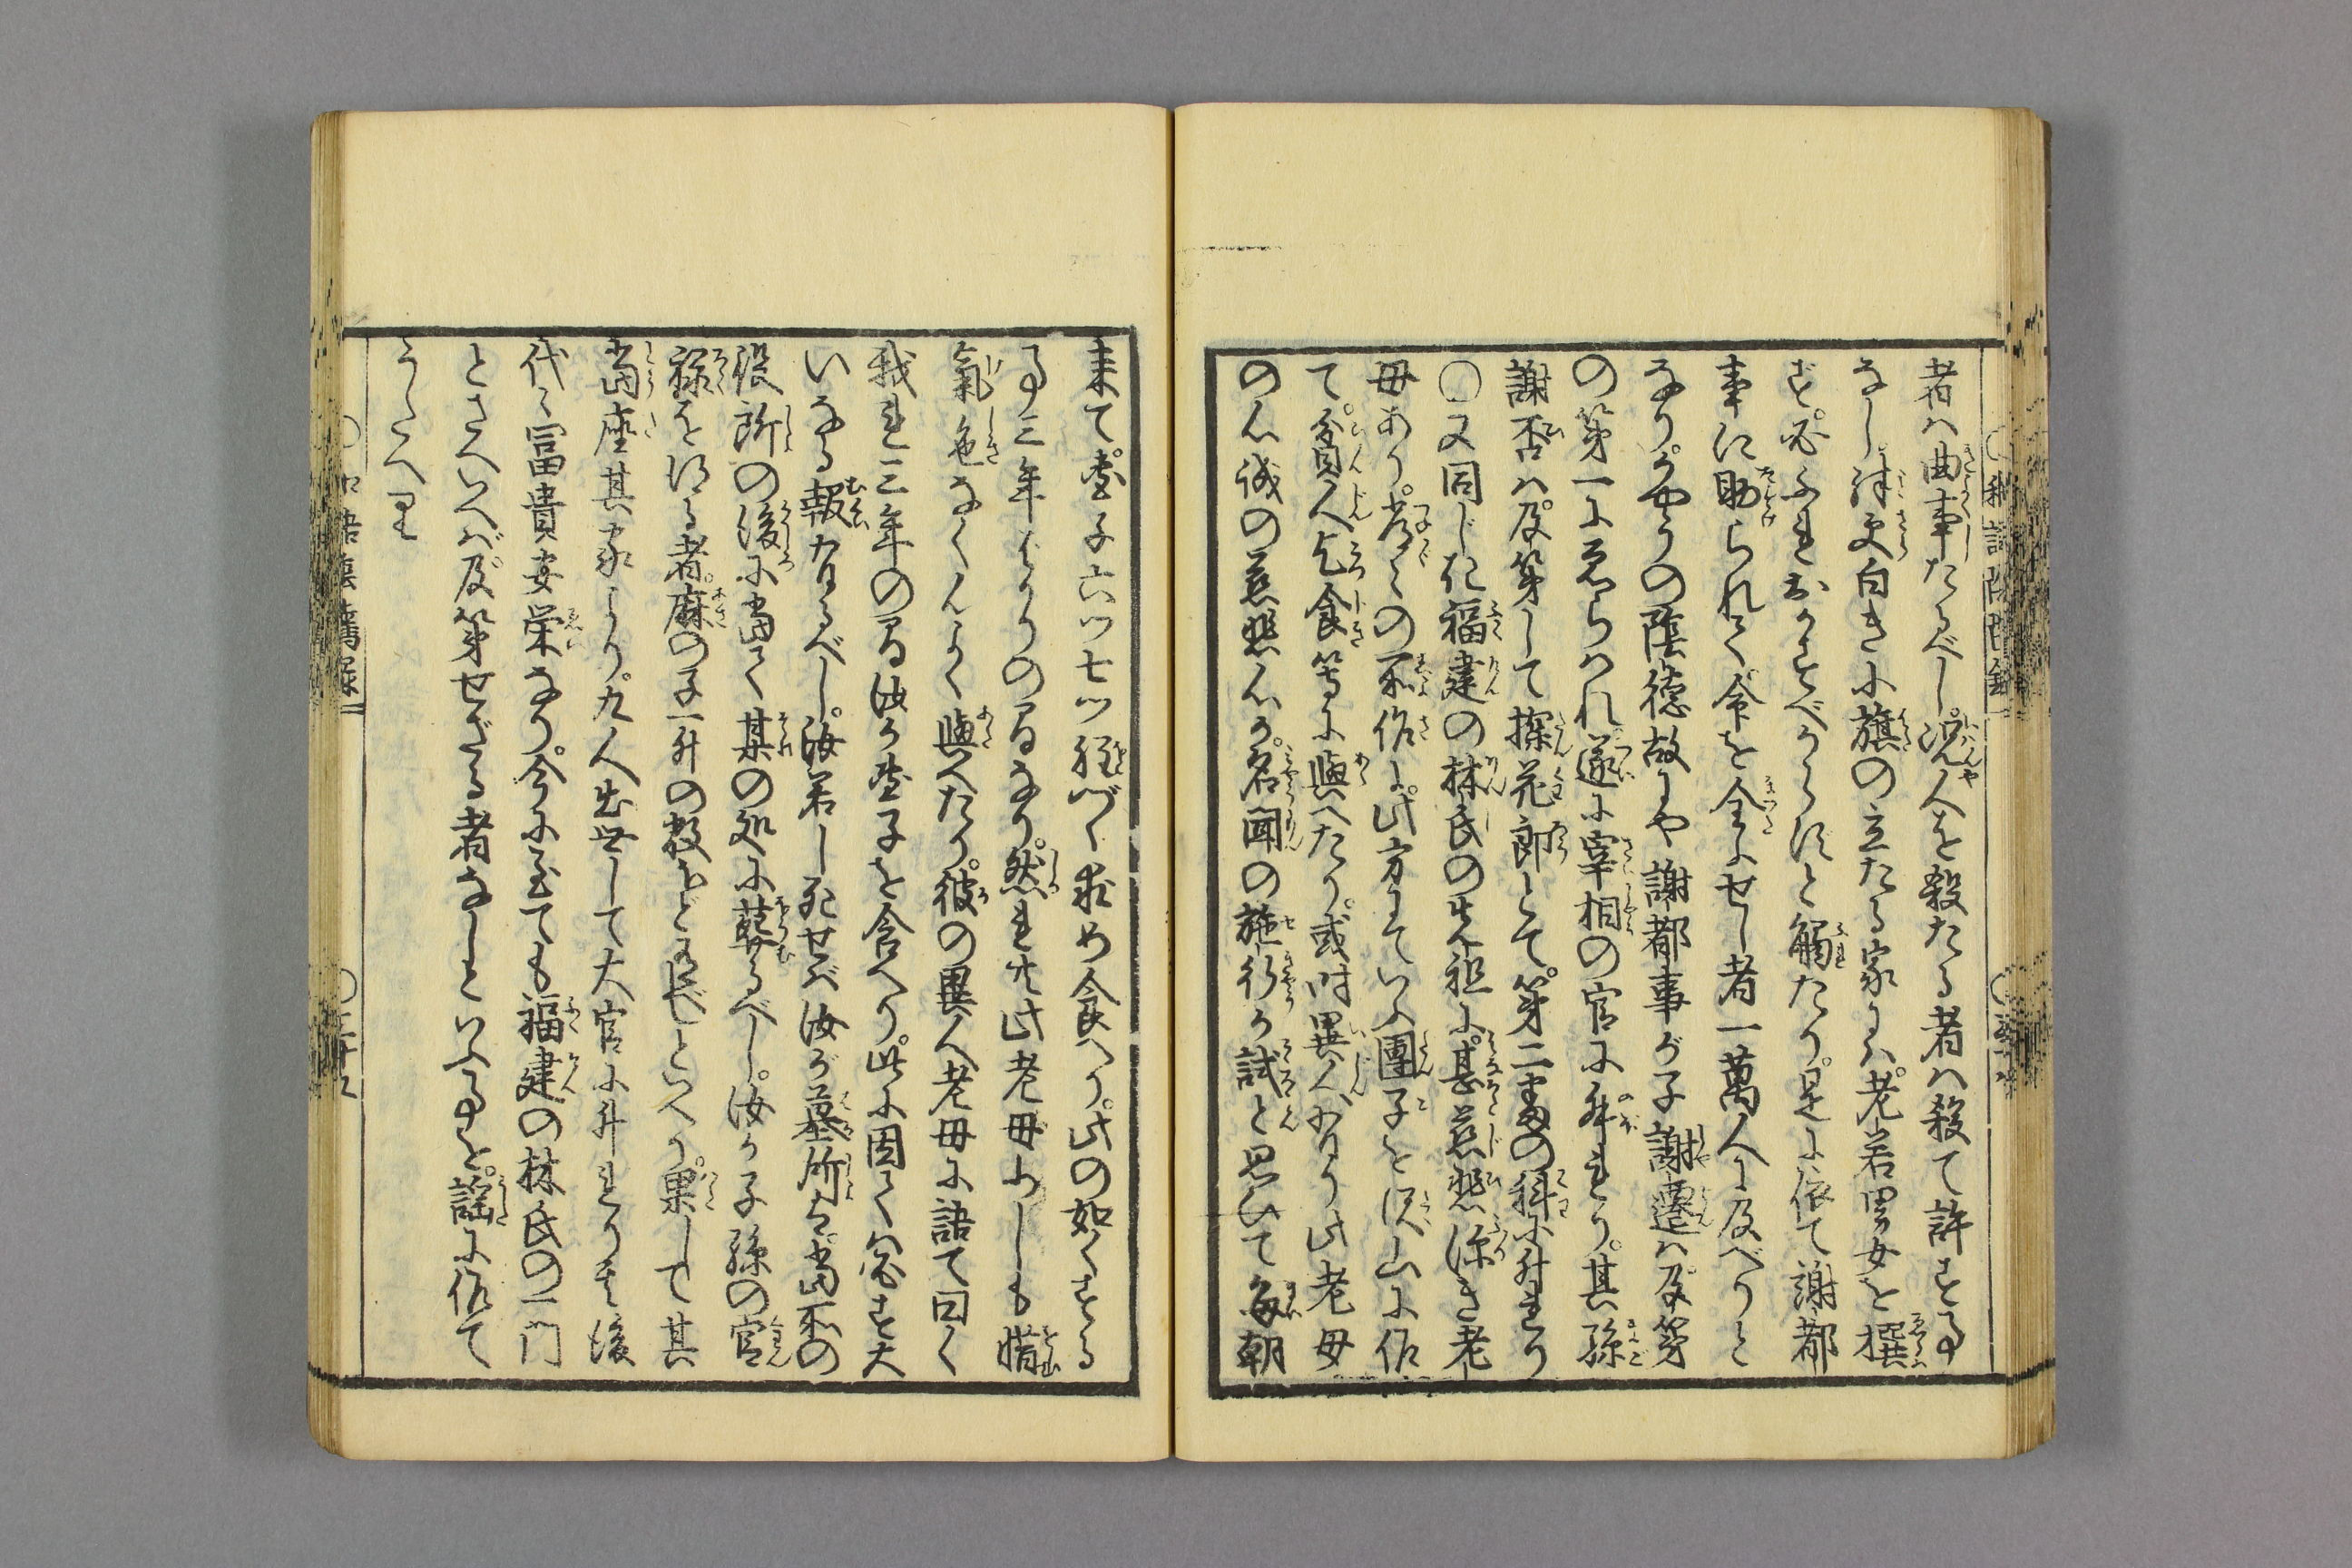 者ハ曲事たるべし。況人を殺たる者ハ殺て許さゞる事
なし。殊更白き小旗の立たる家にハ。老若男女を撰
ず。必ふれおかすべからずと觸たり。是に依て謝都
事に助られて。命を全ふせし者一萬人に及べりと
なり。かやうの陰徳故にや謝都事が子謝遷ハ。及第
の第一にゑらハれ。遂に宰相の官に昇れり。其孫
謝丕ハ。及第して探花郎とて。第二番の科に升れり
〇又同じた福建の林氏の先祖に。甚慈悲深き老
母あり。常々の所作に。此方にていふ團子を沢山に作
て。貧人乞食等に與へたり。或時異人ありり此老母
の心誠の慈悲心か。名聞の施行か試と思ひて毎朝
来て。團子六ツ七ツ程づゝ求め食へり。此の如くする
事三年ばかりの間なり。然れ共此老母少しも惜
氣色なくんよく與へたり。彼の異人老母に語て曰く
我れ三年の間汝か團子を食へり。此に因て必ず大
いなる報有るべし。汝若し死せば汝が墓所ハ。當所の
役所の後に當て。某の処に葬るべし。汝か子孫の官
禄を得る者。麻の子一升の数ほど有べしといへり。果して其
當座其家より。九人出世して大官に升れり其後
代々冨貴安栄なり。今に至ても福建の林氏の一門
とさへいへバ。及第せざる者なしといふ事を。謡に作て
うたへり